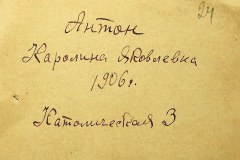 24
Антон
Каролина Яковлевна
1906г.
Католическая 3